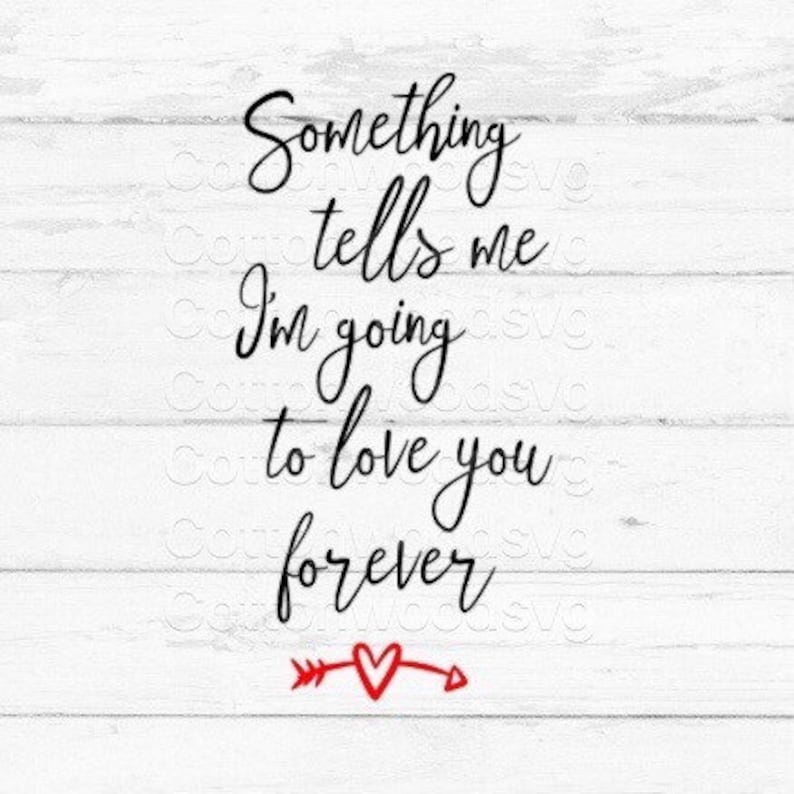 Something
tells me
I'm going
to love you
forever
Cottonwoodsvg
Cottonwoodsvg
Cottonwoodsvg
Cottonwoodsvg
Cottonwoodsvg
Cottonwoodsvg
Cottonwoodsvg